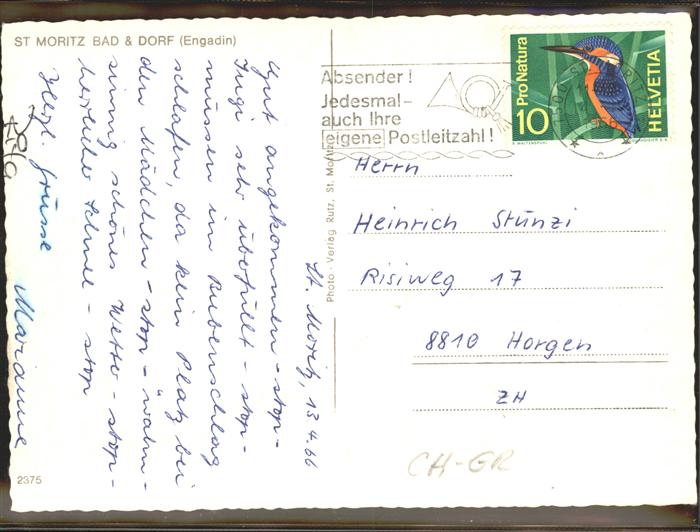 ST MORITZ BAD & DORF (Engadin)
St. Moritz, 13.4.66
Gut angekommen - stop -
Zuge sehr überfüllt - stop -
müssen im Bubenschlag
schlafen, da kein Platz bei
den Mädchen - stop - wahn-
sinnig schönes Wetter - stop -
herrlicher Schnee - stop
Herzl. Grüsse
Marianne
2375
Photo - Verlag Rutz, St. Moritz
Absender!
Jedesmal-
auch Ihre
eigene Postleitzahl!
Pro Natura
10
HELVETIA
Herrn
Heinrich Stünzi
Risiweg 17
8810 Horgen
ZH
CH-GR